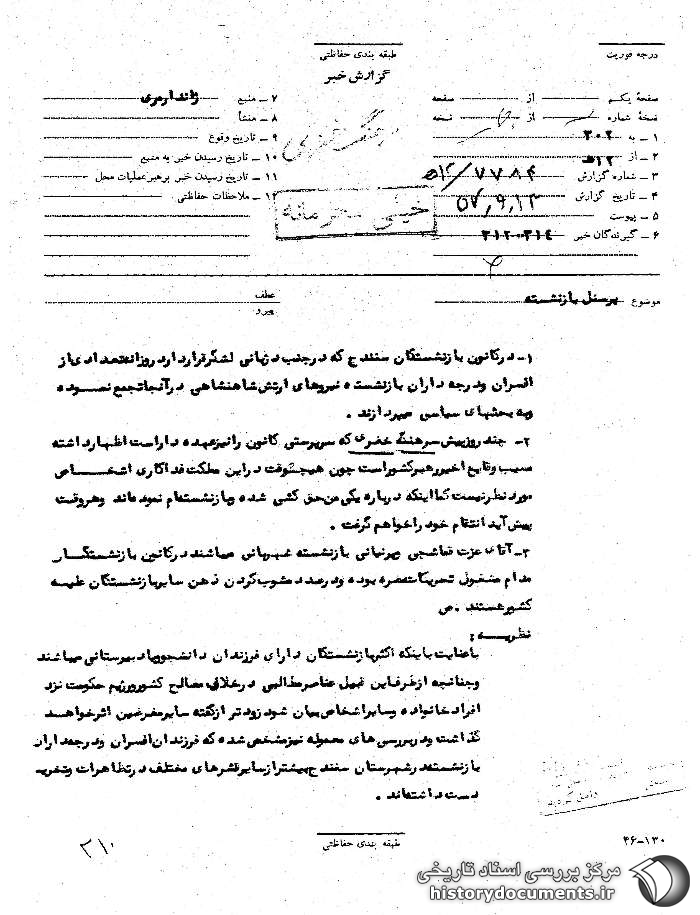 درجه فوریت
طبقه بندی حفاظتی
گزارش خبر
صفحهٔ یکم از صفحه
نسخهٔ شماره از نسخه
۱ ــ به ۳۰۲
۲ ــ از ۱۲ ه‍
۳ ــ شماره گزارش ۷۷۸۴/ ۱۲ه‍
۴ ــ تاریخ گزارش ۵۷٫۹٫۱۲
۵ ــ پیوست
۶ ــ گیرندگان خبر ۳۱۲-۳۱۴
۷ ــ منبع ژاندارمری
۸ ــ منشأ
۹ ــ تاریخ وقوع
۱۰ ــ تاریخ رسیدن خبر به منبع
۱۱ ــ تاریخ رسیدن خبر برهبر عملیات محل
۱۲ ــ ملاحظات حفاظتی
خیلی محرمانه
موضوع پرسنل بازنشسته
عطف
پیرو
۱- در کانون بازنشستگان سنندج که در جنب دژبانی لشگر قرار دارد روزانه تعدادی از
افسران و درجه داران بازنشسته نیروهای ارتش شاهنشاهی در آنجا تجمع نموده
و به بحثهای سیاسی میپردازند .
۲- چند روز پیش سرهنگ خضری که سرپرستی کانون را نیز عهده دار است اظهار داشته
مسبب وقایع اخیر رهبر کشور است چون هیچوقت در این مملکت فداکاری اشخاص
مورد نظر نیست کما اینکه درباره یکی من حق کشی شده و بازنشسته‌ام نموده‌اند وهروقت
پیش آید انتقام خود را خواهم گرفت .
۳- آقای عزت تماشچی بازنشسته شهربانی میباشند در کانون بازنشستگان
مدام مشغول تحریکات عمره بوده و درصدد مشوب کردن ذهن سایر بازنشستگان علیه
کشور هستند . ص
نظریه :
باعنایت باینکه اکثر بازنشستگان دارای فرزندان دانشجو یا دبیرستانی میباشند
و چنانچه از طرف این قبیل عناصر مطالبی در خلاف مصالح کشور و رژیم حکومت نزد
افراد خانواده و سایر اشخاص بیان شود زودتر از گفته سایر مغرضین اثر خواهد
گذاشت و در بررسی های معموله نیز مشخص شده که فرزندان افسران و درجه‌داران
بازنشسته در شهرستان سنندج بیشتر از سایر قشرهای مختلف در تظاهرات و تخریب
دست داشته‌اند .
طبقه بندی حفاظتی
۴۶-۱۳۰
۳۱۰
مرکز بررسی اسناد تاریخی
historydocuments.ir